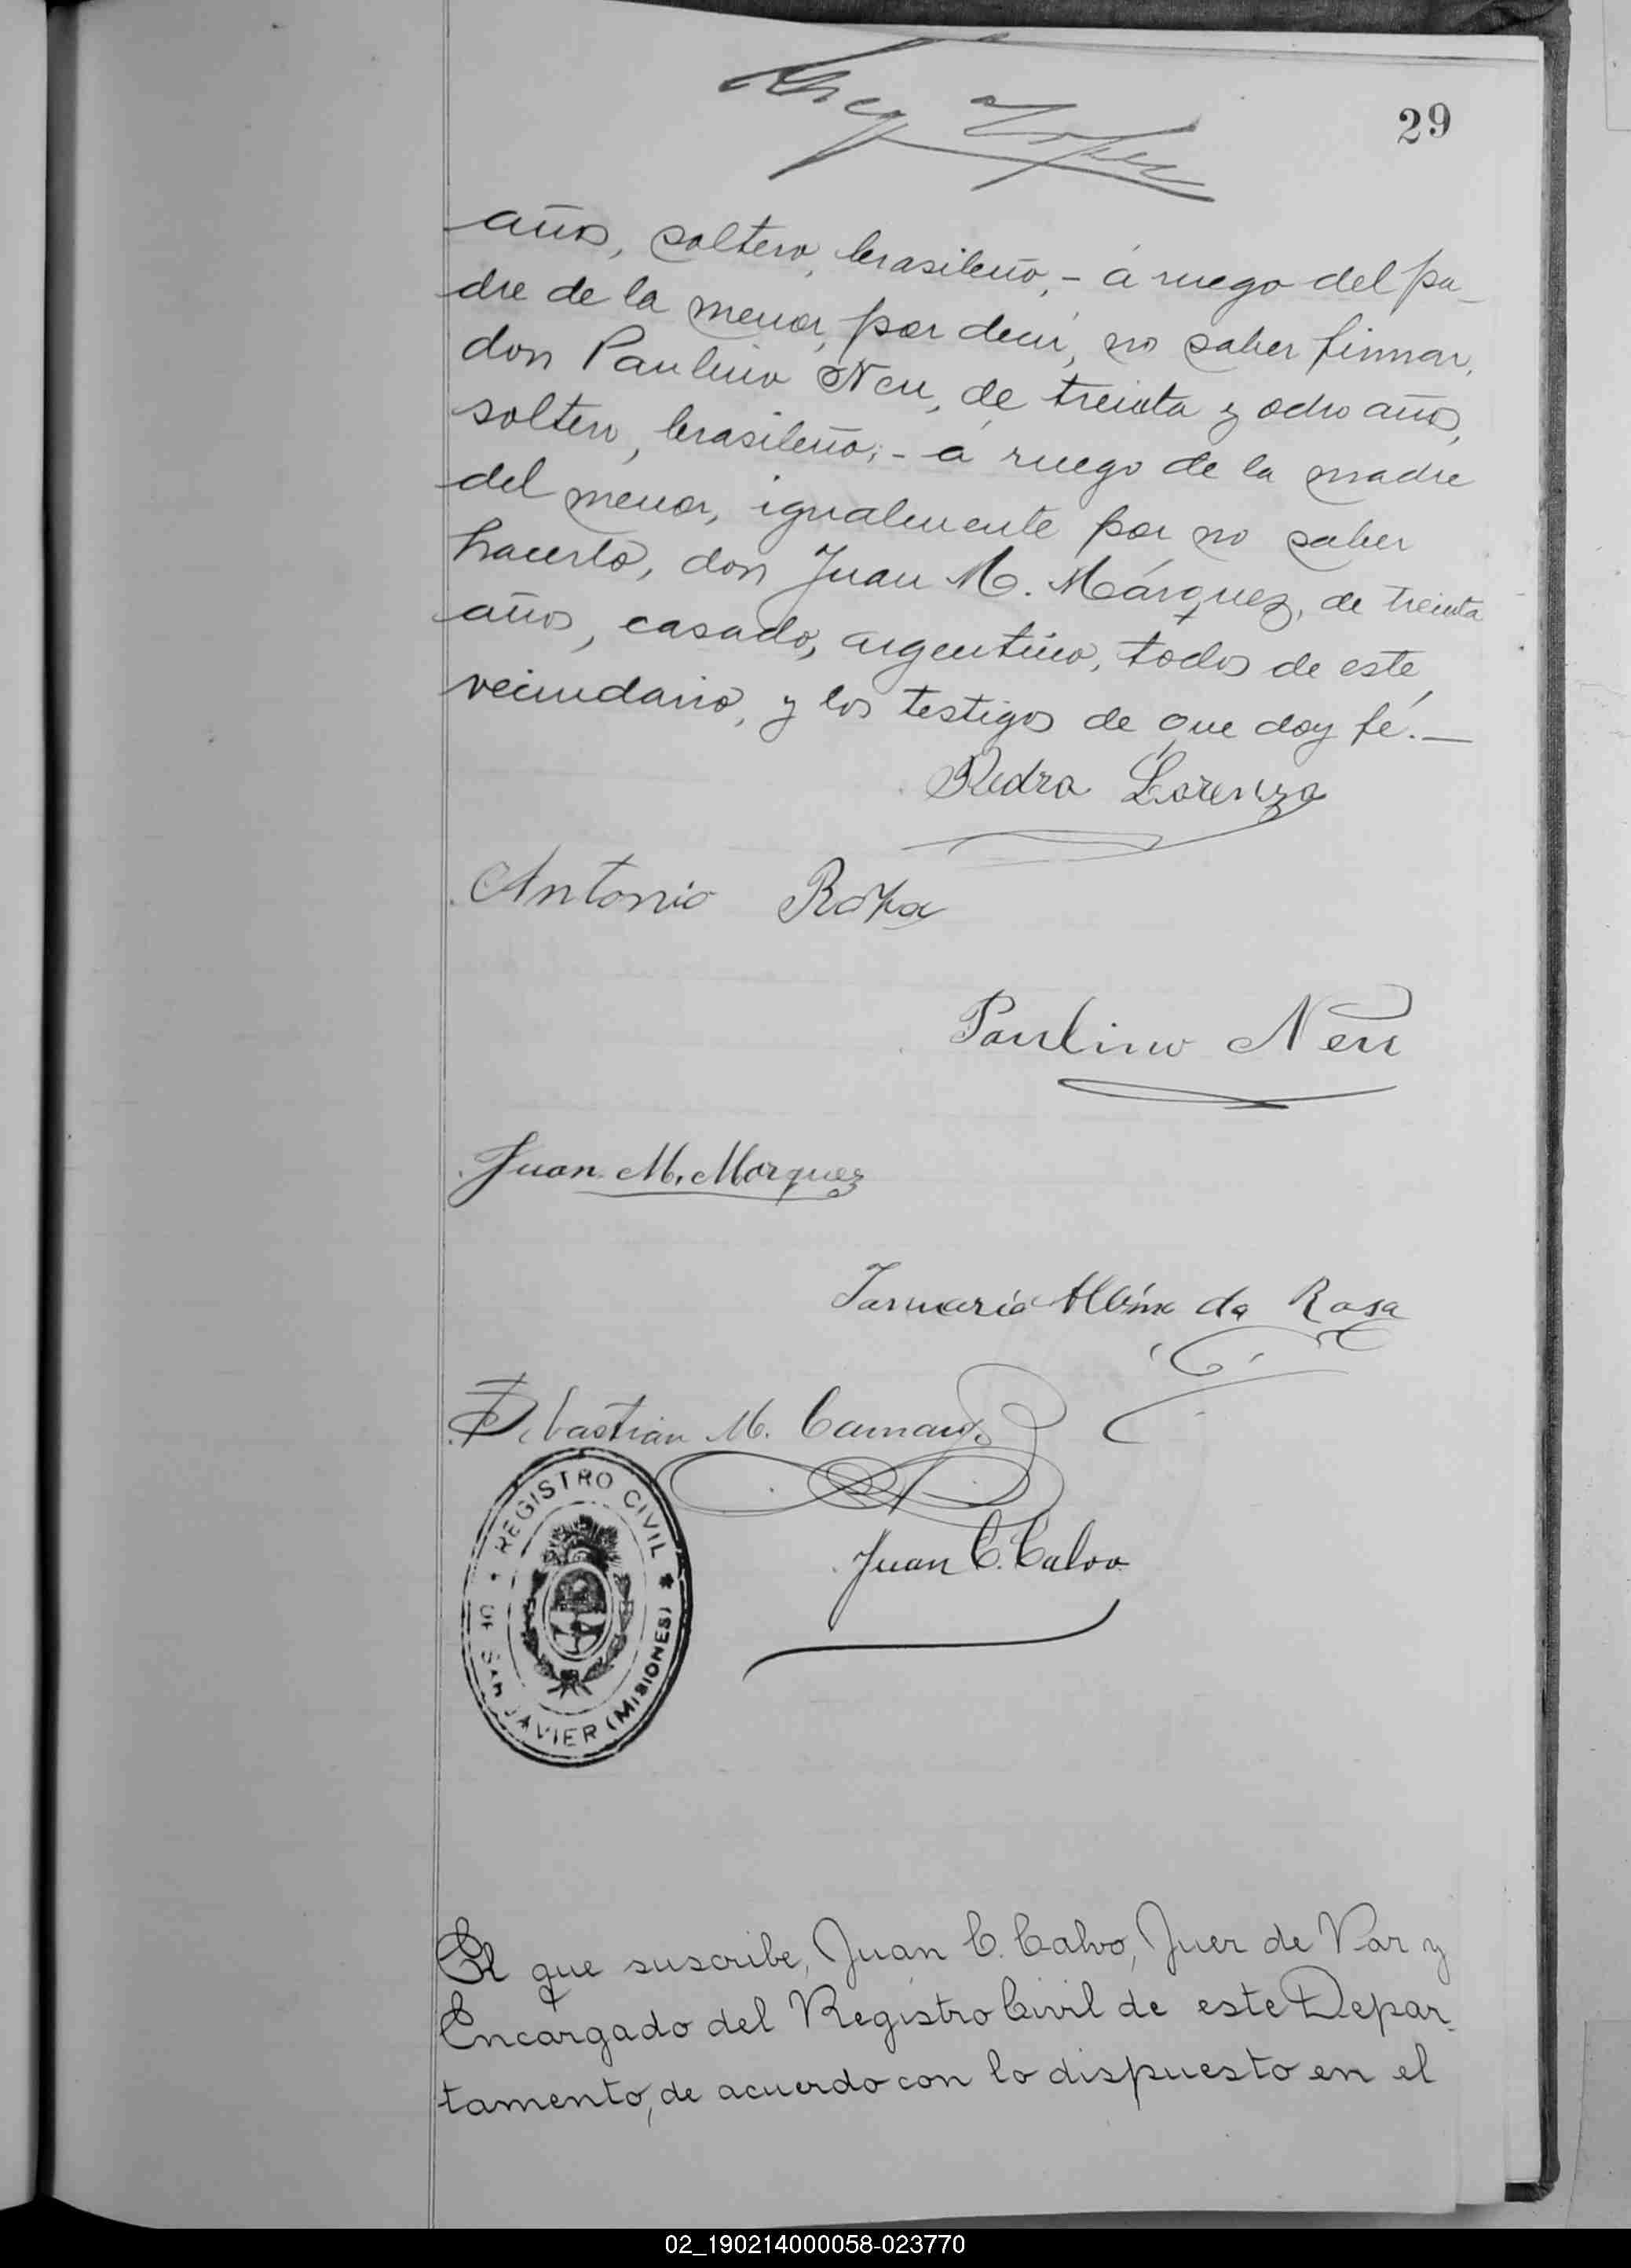 29
años, soltero, brasileño,- á ruego del pa-
dre de la menor, por decir, no saber firmar,
don Paulino Neu, de treinta y ocho años,
soltero, brasileño;- á ruego de la madre
del menor, igualmente por no saber
hacerlo, don Juan M. Márquez, de treinta
años, casado, argentino, todos de este
vecindario, y los testigos de que doy fé.-
Pedro Lorenzo
Antonio
Paulino Neu
Juan M. Marquez
da Rosa
Sebastian M. Camargo
REGISTRO CIVIL
DE SAN JAVIER (MISIONES)
Juan C. Calvo
El que suscribe, Juan C. Calvo, Juez de Paz y
Encargado del Registro Civil de este Depar-
tamento, de acuerdo con lo dispuesto en el
02_190214000058-023770